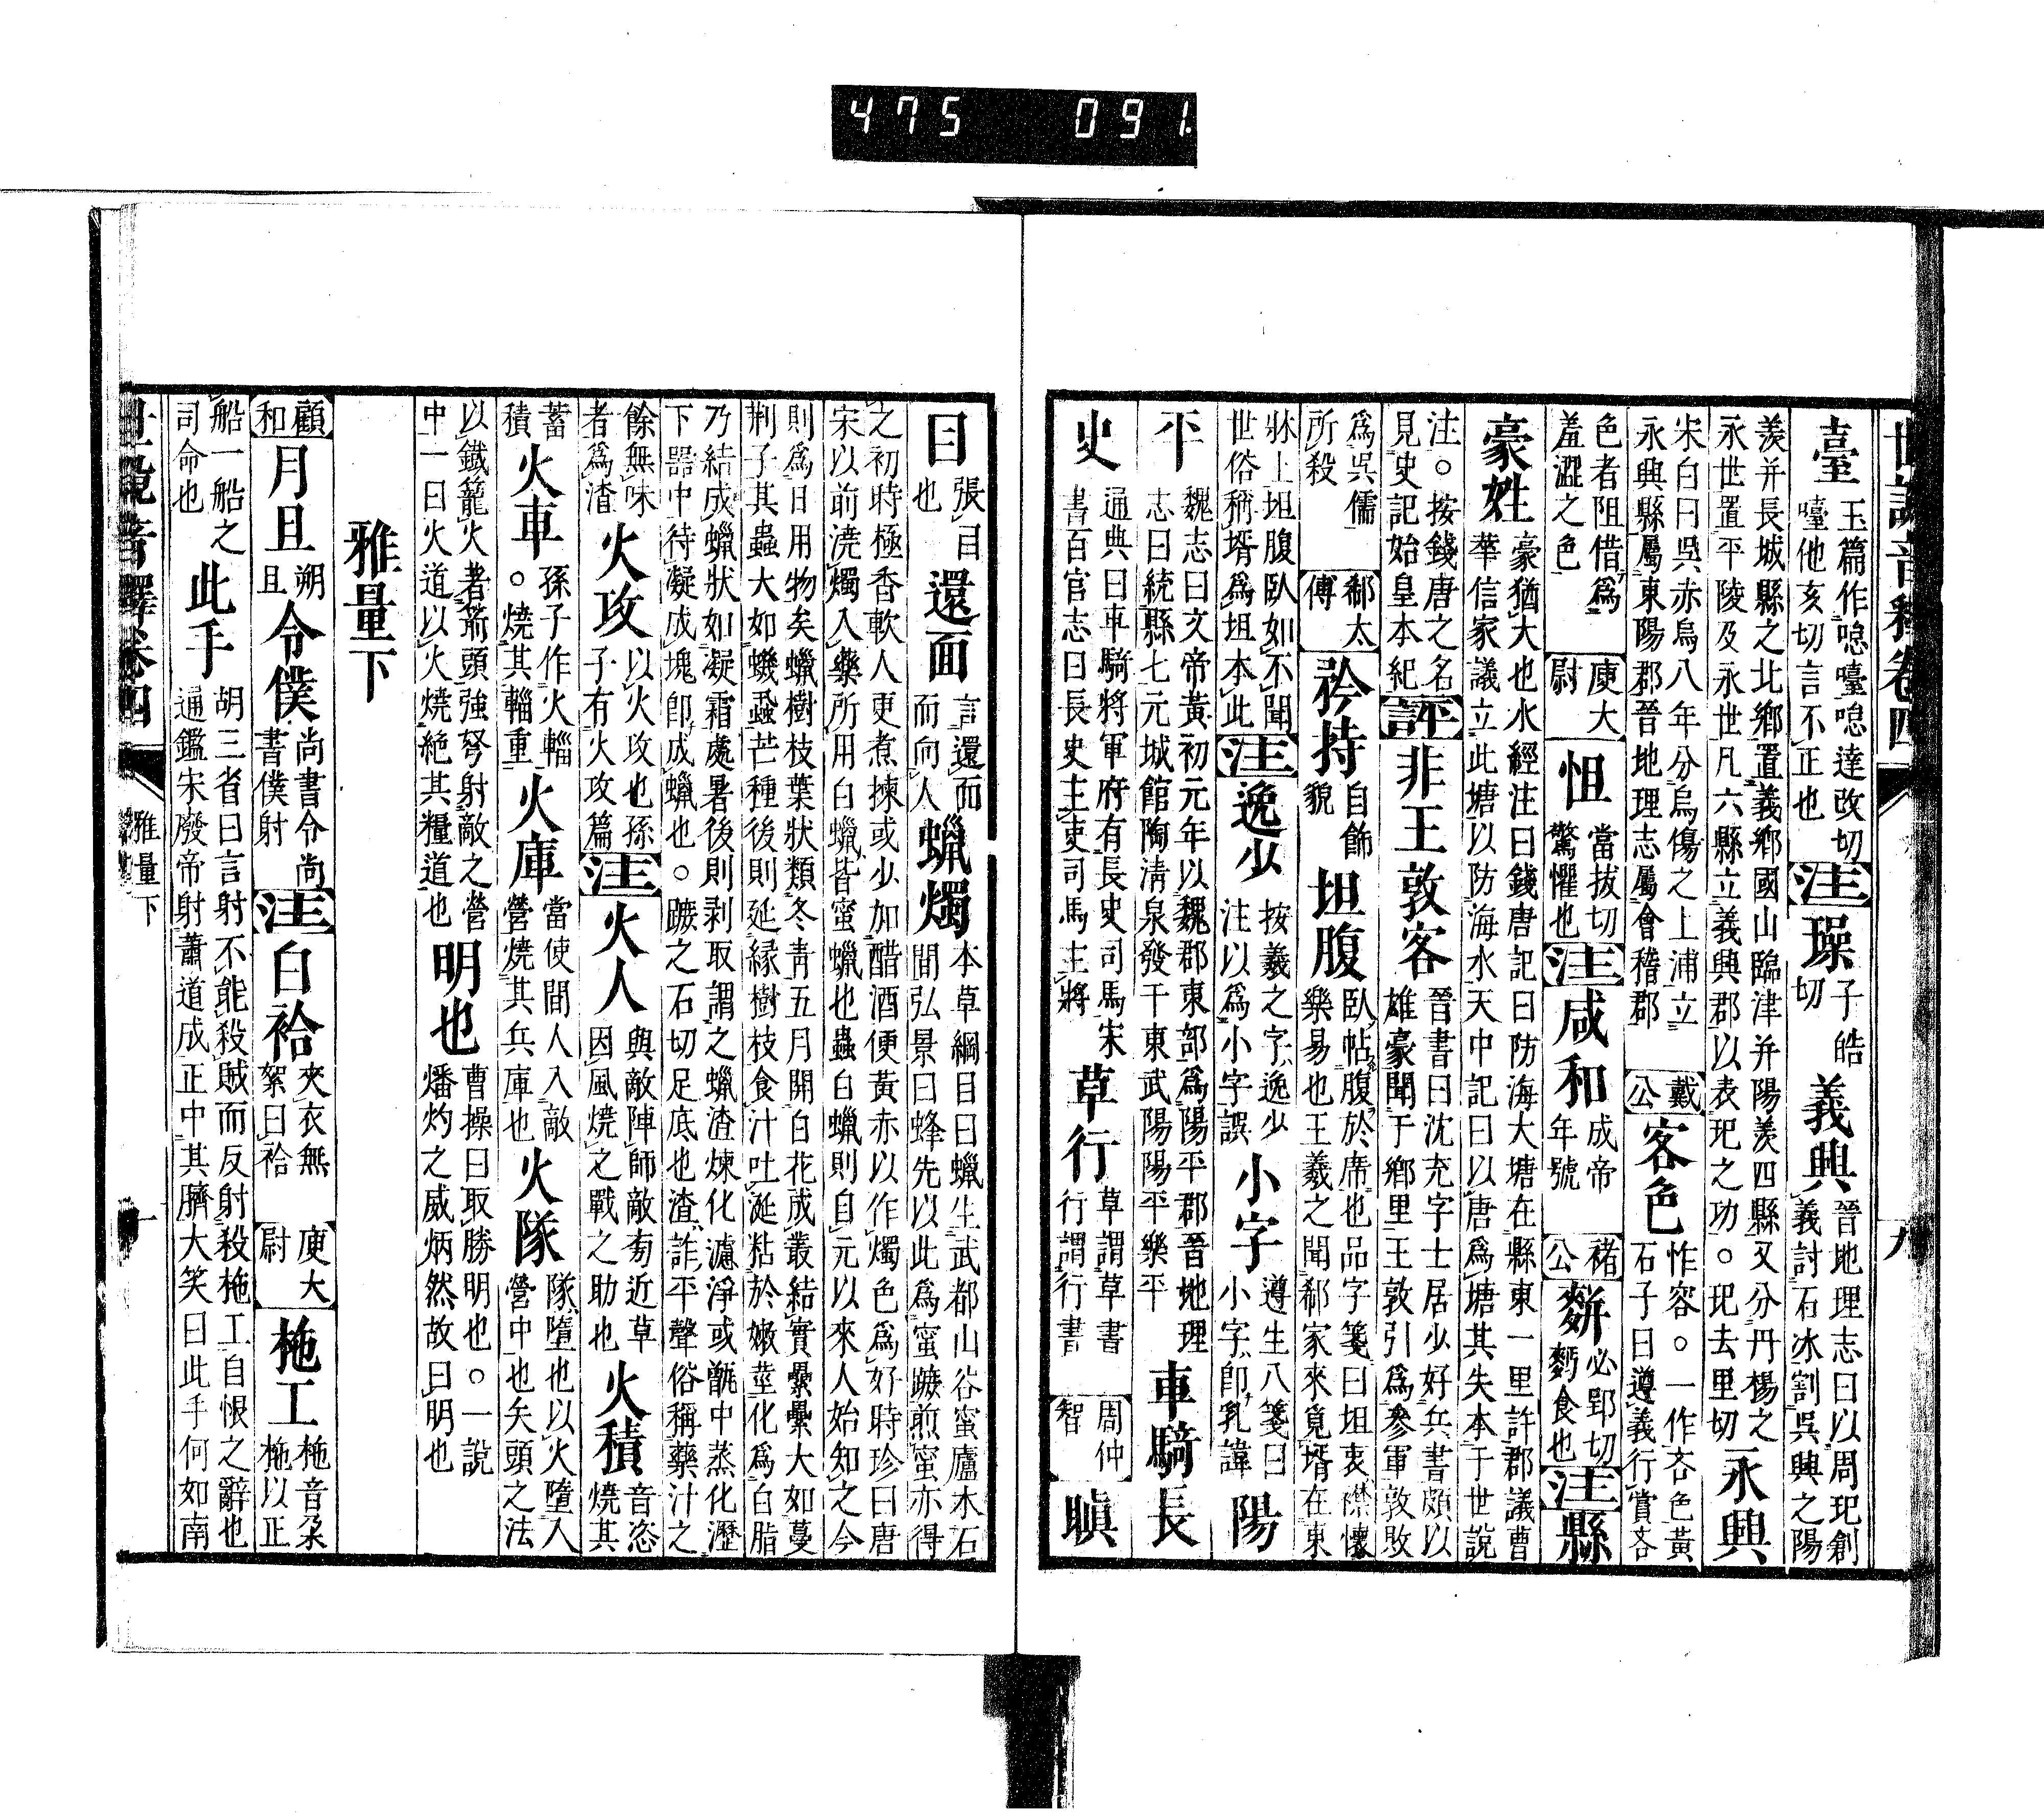 475 091.
世說音釋卷四
九
臺 玉篇作噫嚏噫達改切
嚏他亥切言不正也 注 璪 子皓
切 義興 晉地理志曰以周玘創
義討石冰割吳興之陽
羨并長城縣之北鄉置義鄉國山臨津并陽羨四縣又分丹楊之
永世置平陵及永世凡六縣立義興郡以表玘之功○玘去里切 永興
宋白曰吳赤烏八年分烏傷之上浦立
永興縣屬東陽郡晉地理志屬會稽郡 戴公 客色 怍容○一作吝色黃
石子曰遵義行賞吝
色者阻借爲
羞澀之色 庾大尉 怛 當拔切
驚懼也 注 咸和 成帝
年號 褚公 䴵 必郢切
麪食也 注 縣
豪姓 豪猶大也水經注曰錢唐記曰防海大塘在縣東一里許郡議曹
華信家議立此塘以防海水天中記曰以唐爲塘其失本于世說
注○按錢唐之名
見史記始皇本紀 評 非王敦客 晉書曰沈充字士居少好兵書頗以
雄豪聞于鄉里王敦引爲參軍敦敗
爲吳儒
所殺 郗太傅 矜持 自飾
貌 坦腹 臥帖腹於席也品字箋曰坦衷襟懷
樂易也王羲之聞郗家來覓壻在東
牀上坦腹臥如不聞
世俗稱壻爲坦本此 注 逸少 按羲之字逸少
注以爲小字誤 小字 遵生八箋曰
小字卽乳諱 陽
平 魏志曰文帝黃初元年以魏郡東部爲陽平郡晉地理
志曰統縣七元城館陶清泉發干東武陽陽平樂平 車騎長
史 通典曰車騎將軍府有長史司馬宋
書百官志曰長史主吏司馬主將 草行 草謂草書
行謂行書 周仲智 瞋
目 張目
也 還面 言還而
而向人 蠟燭 本草綱目曰蠟生武都山谷蜜廬木石
間弘景曰蜂先以此爲蜜蹠煎蜜亦得
之初時極香軟人更煮揀或少加醋酒便黃赤以作燭色爲好時珍曰唐
宋以前澆燭入藥所用白蠟皆蜜蠟也蟲白蠟則自元以來人始知之今
則爲日用物矣蠟樹枝葉狀類冬青五月開白花成叢結實纍纍大如蔓
荆子其蟲大如蟣蝨芒種後則延緣樹枝食汁吐涎粘於嫩莖化爲白脂
乃結成蠟狀如凝霜處暑後則剥取謂之蠟渣煉化濾淨或甑中蒸化瀝
下器中待凝成塊卽成蠟也○蹠之石切足底也渣詐平聲俗稱藥汁之
餘無味
者爲渣 火攻 以火攻也孫
子有火攻篇 注 火人 與敵陣師敵旁近草
因風燒之戰之助也 火積 音恣
燒其
蓄
積 火車 孫子作火輜
○燒其輜重 火庫 當使間人入敵
營燒其兵庫也 火隊 隊墮也以火墮入
營中也矢頭之法
以鐵籠火著箭頭強弩射敵之營
中一曰火道以火燒絕其糧道也 明也 曹操曰取勝明也○一說
燔灼之威炳然故曰明也
雅量下
顧和 月旦 朔
旦 令僕 尚書令尚
書僕射 注 白袷 夾衣無
絮曰袷 庾大尉 柂工 柂音朶
柂以正
船一船之
司命也 此手 胡三省曰言射不能殺賊而反射殺柂工自恨之辭也
通鑑宋廢帝射蕭道成正中其臍大笑曰此手何如南
世說音釋卷四
雅量下